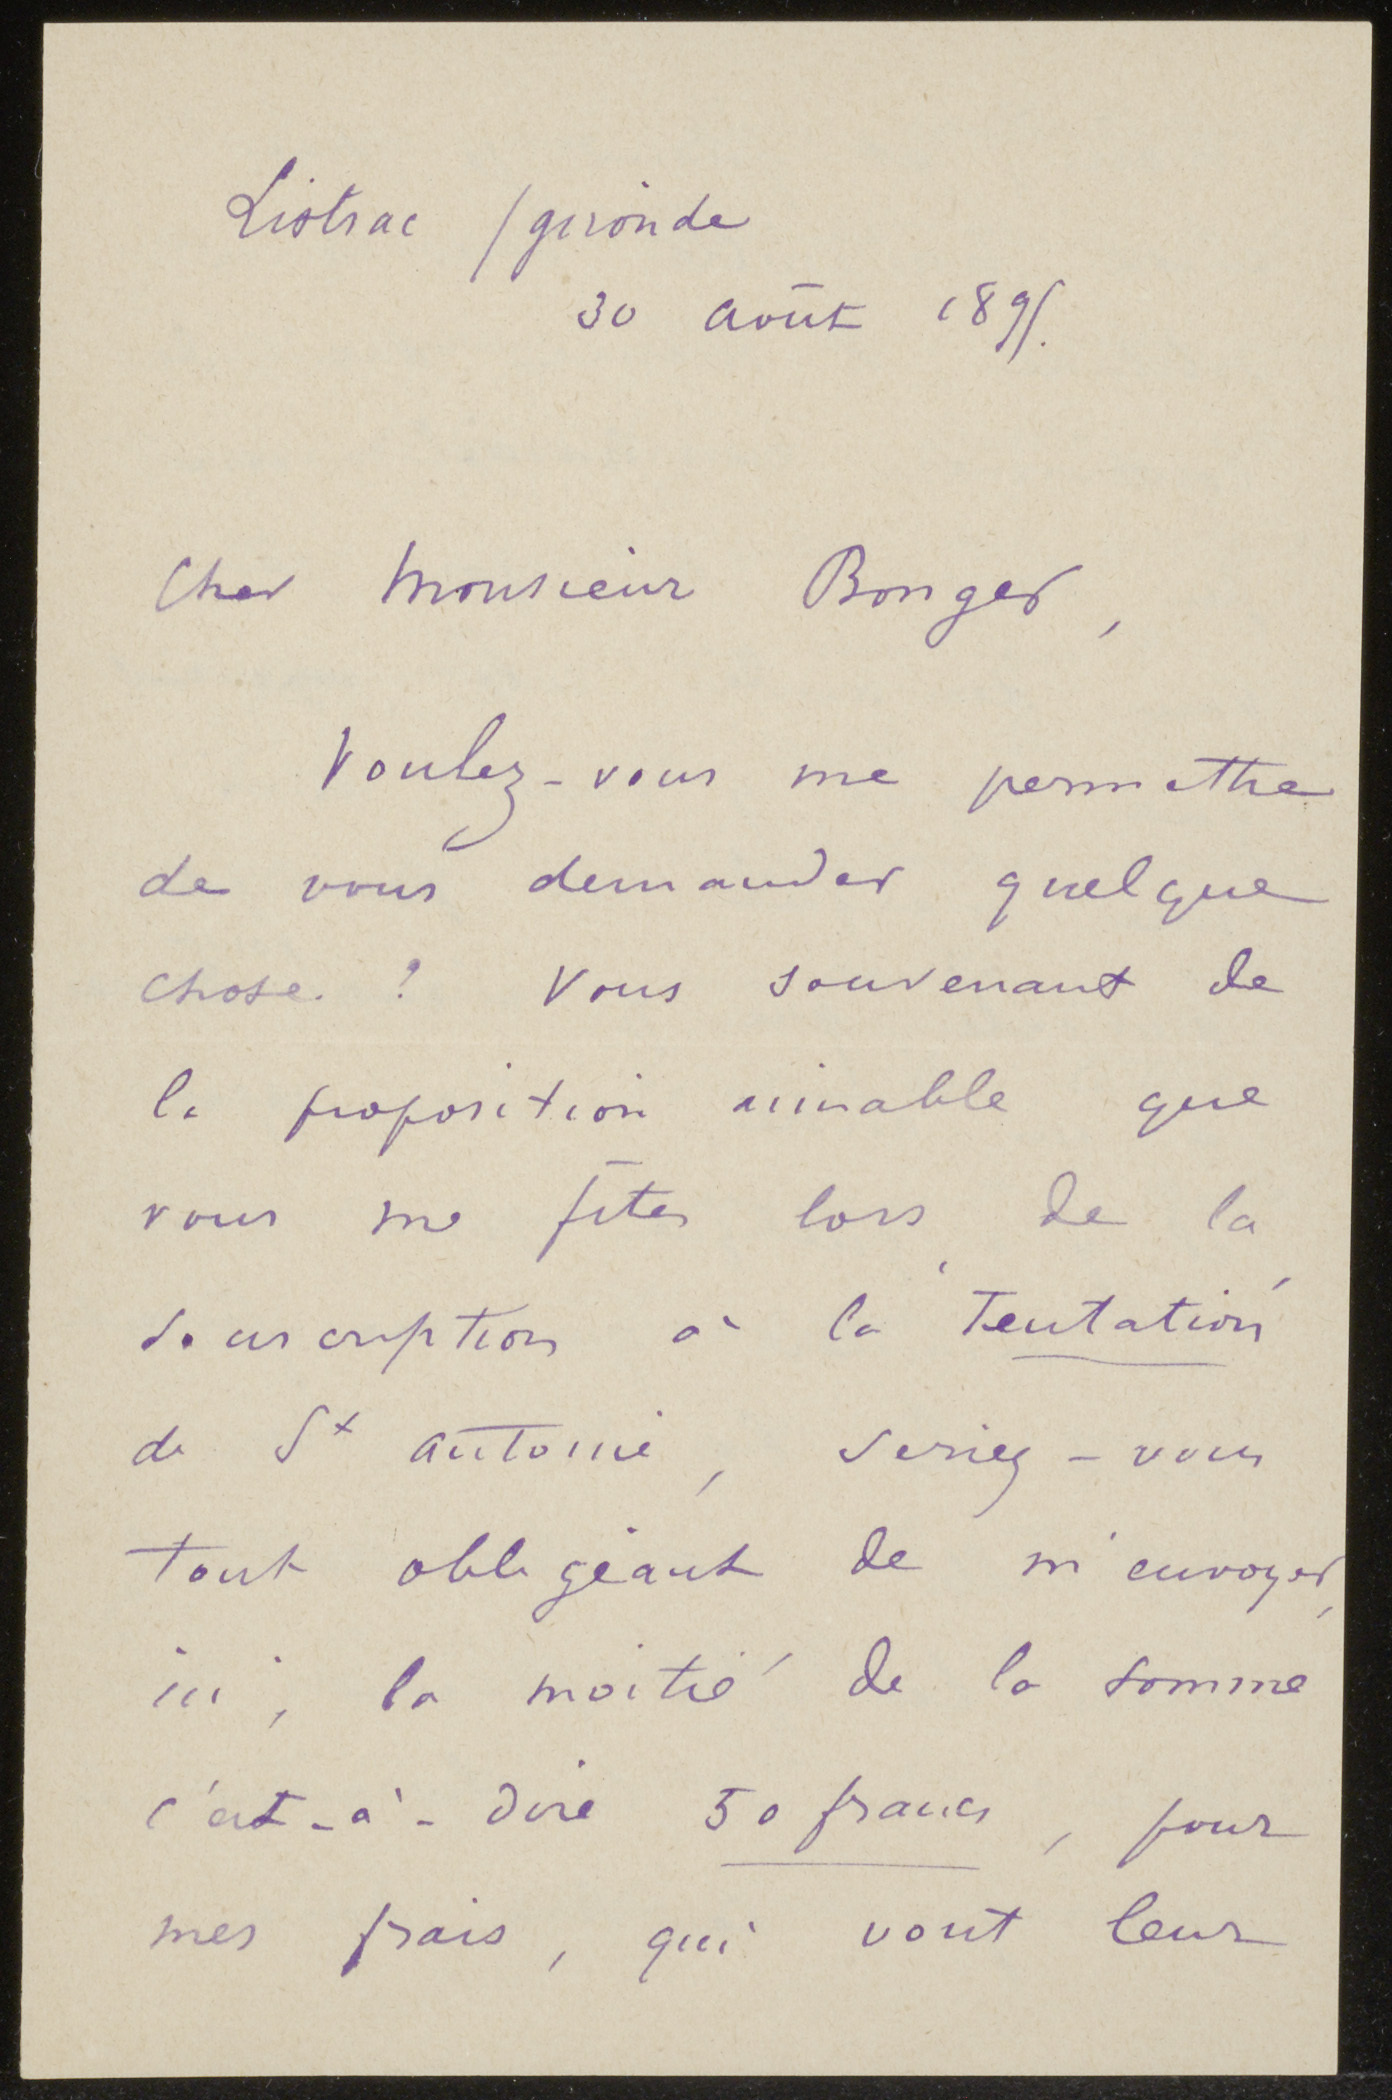 Listrac / gironde
30 août 1895.
Cher Monsieur Bonger,
Voulez-vous me permettre
de vous demander quelque
chose. ? Vous souvenant de
la proposition aimable que
vous me fîtes lors de la
souscription à la 'Tentation'
de St antoine, seriez-vous
tout obligéant de m'envoyer,
ici, la moitié de la somme
c'est-à-dire 50 francs, pour
mes frais, qui vont leur